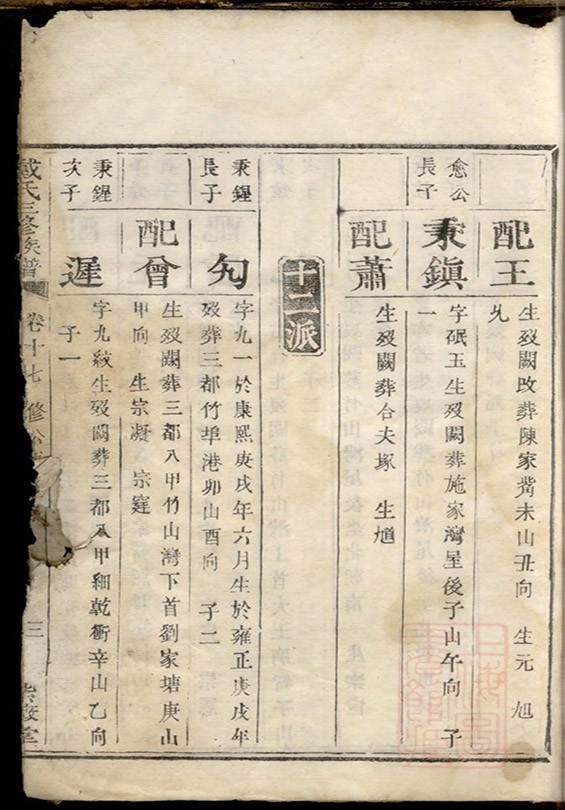 配王
生歿闕改葬陳家嘴未山丑向 生元 旭
先
愈公
長子
秉鎮
字砥玉生歿闕葬施家灣屋後子山午向 子
一
配蕭
生歿闕葬台夫塚 生馗
十二派
秉鍟
長子
勼
字九一於康熙庚戌年六月生於雍正庚戌年
歿葬三都竹埠港卯山酉向 子二
配曾
生歿闕葬三都八甲竹山灣下首劉家塘庚山
甲向 生宗凝 宗寔
秉鍟
次子
遲
字九紋生歿闕葬三都八甲細乾衝辛山乙向
子一
戴氏三修族譜 卷十七 修公 三 崇敬堂